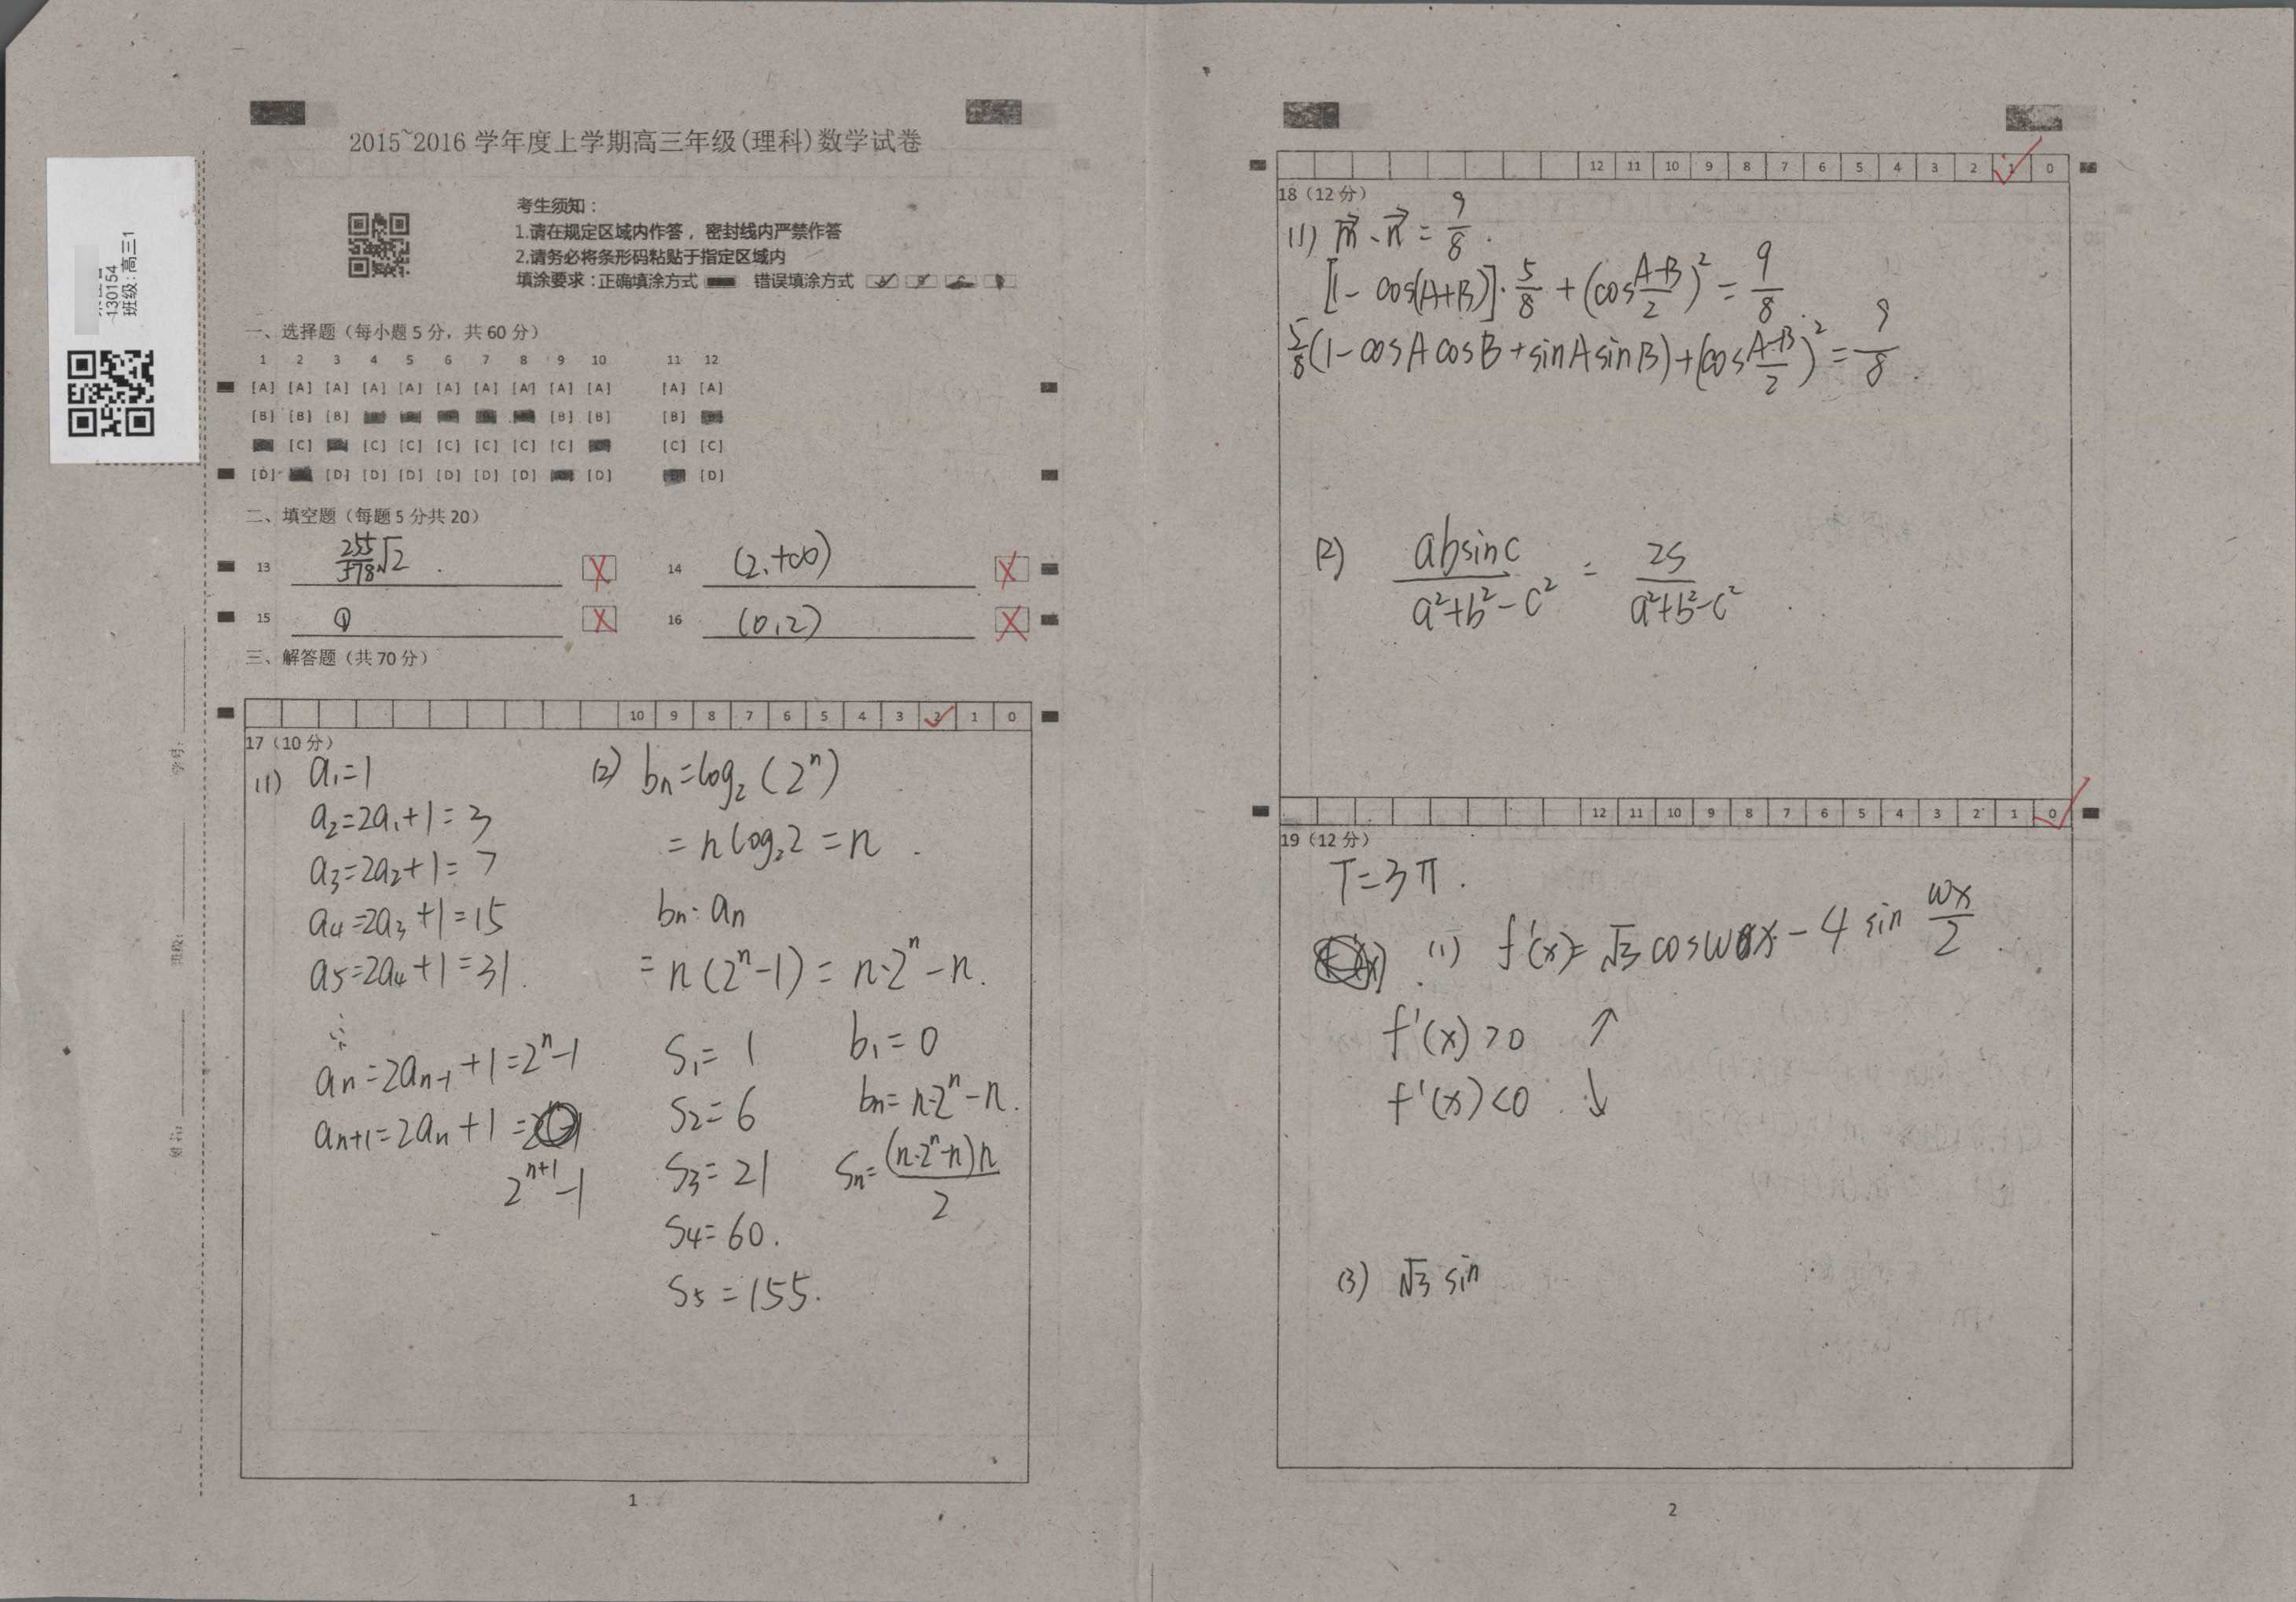 2015~2016 学年度上学期高三年级(理科)数学试卷
130154
班级:高三1
考生须知：
1.请在规定区域内作答，密封线内严禁作答
2.请务必将条形码粘贴于指定区域内
填涂要求：正确填涂方式 错误填涂方式
一、选择题（每小题 5 分，共 60 分）
1 2 3 4 5 6 7 8 9 10 11 12
[A] [A] [A] [A] [A] [A] [A] [A] [A] [A] [A] [A]
[B] [B] [B] [B] [B] [B]
[C] [C] [C] [C] [C] [C] [C] [C] [C]
[D] [D] [D] [D] [D] [D] [D] [D] [D]
二、填空题（每题 5 分共 20）
13 255/578 √2 .
14 (2,+∞)
15 ①
16 (0,2)
三、解答题（共 70 分）
10 9 8 7 6 5 4 3 2 1 0
17（10 分）
(1) a₁=1
a₂=2a₁+1=3
a₃=2a₂+1=7
a₄=2a₃+1=15
a₅=2a₄+1=31.
aₙ=2aₙ₋₁+1=2ⁿ-1
aₙ₊₁=2aₙ+1=
2ⁿ⁺¹-1
(2) bₙ=log₂(2ⁿ)
=n log₂2=n .
bₙ·aₙ
=n(2ⁿ-1)=n·2ⁿ-n.
S₁=1
S₂=6
S₃=21
S₄=60.
S₅=155.
b₁=0
bₙ=n·2ⁿ-n.
Sₙ=(n·2ⁿ-n)n/2
1
学号：
班级：
12 11 10 9 8 7 6 5 4 3 2 1 0
18（12 分）
(1) m⃗·n⃗=9/8.
[1-cos(A+B)]·5/8+(cos (A-B)/2)²=9/8.
5/8(1-cosAcosB+sinAsinB)+(cos (A-B)/2)²=9/8.
(2) absinC/(a²+b²-c²) = 2S/(a²+b²-c²) .
12 11 10 9 8 7 6 5 4 3 2 1 0
19（12 分）
T=3π.
(1) f'(x)=√3cosωx-4sin ωx/2 .
f'(x)>0 ↑
f'(x)<0 ↓
(3) √3 sin
2